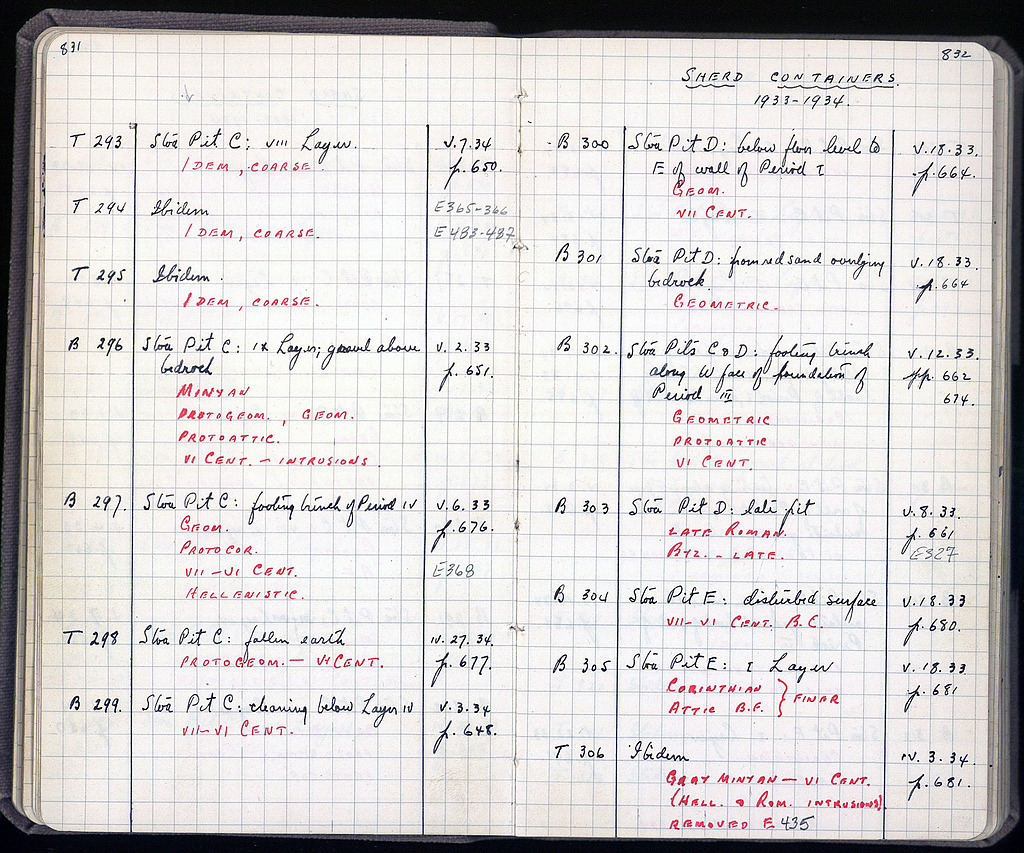 831
T 293 Stoa Pit C: VIII Layer. V.7.34
IDEM, COARSE. p.650.
T 294 Ibidem E365-366
IDEM, COARSE. E483-487
T 295 Ibidem.
IDEM, COARSE.
B 296 Stoa Pit C: IX Layer; gravel above V.2.33
bedrock p.651.
MINYAN
PROTOGEOM., GEOM.
PROTOATTIC.
VI CENT. - INTRUSIONS.
B 297. Stoa Pit C: footing trench of Period IV V.6.33
GEOM. p.676.
PROTOCOR.
VII-VI CENT. E368
HELLENISTIC.
T 298 Stoa Pit C: fallen earth IV.27.34.
PROTOGEOM. — VI CENT. p.677.
B 299. Stoa Pit C: cleaning below Layer IV V.3.34
VII-VI CENT. p.648.
832
SHERD CONTAINERS.
1933-1934.
B 300 Stoa Pit D: below floor level to V.18.33.
E of wall of Period I p.664.
GEOM.
VII CENT.
B 301 Stoa Pit D: from red sand overlying V.18.33.
bedrock. p.664
GEOMETRIC.
B 302. Stoa Pits C & D: footing trench V.12.33.
along W face of foundation of pp.662
Period III 674.
GEOMETRIC
PROTOATTIC
VI CENT.
B 303 Stoa Pit D: late pit V.8.33.
LATE ROMAN. p.661
BYZ. - LATE. E327
B 304 Stoa Pit E: disturbed surface V.18.33
VII-VI CENT. B.C. p.680.
B 305 Stoa Pit E: I Layer V.18.33
CORINTHIAN } FINER p.681
ATTIC B.F.
T 306 Ibidem IV.3.34.
GRAY MINYAN — VI CENT. p.681.
(HELL. & ROM. INTRUSIONS)
REMOVED E 435